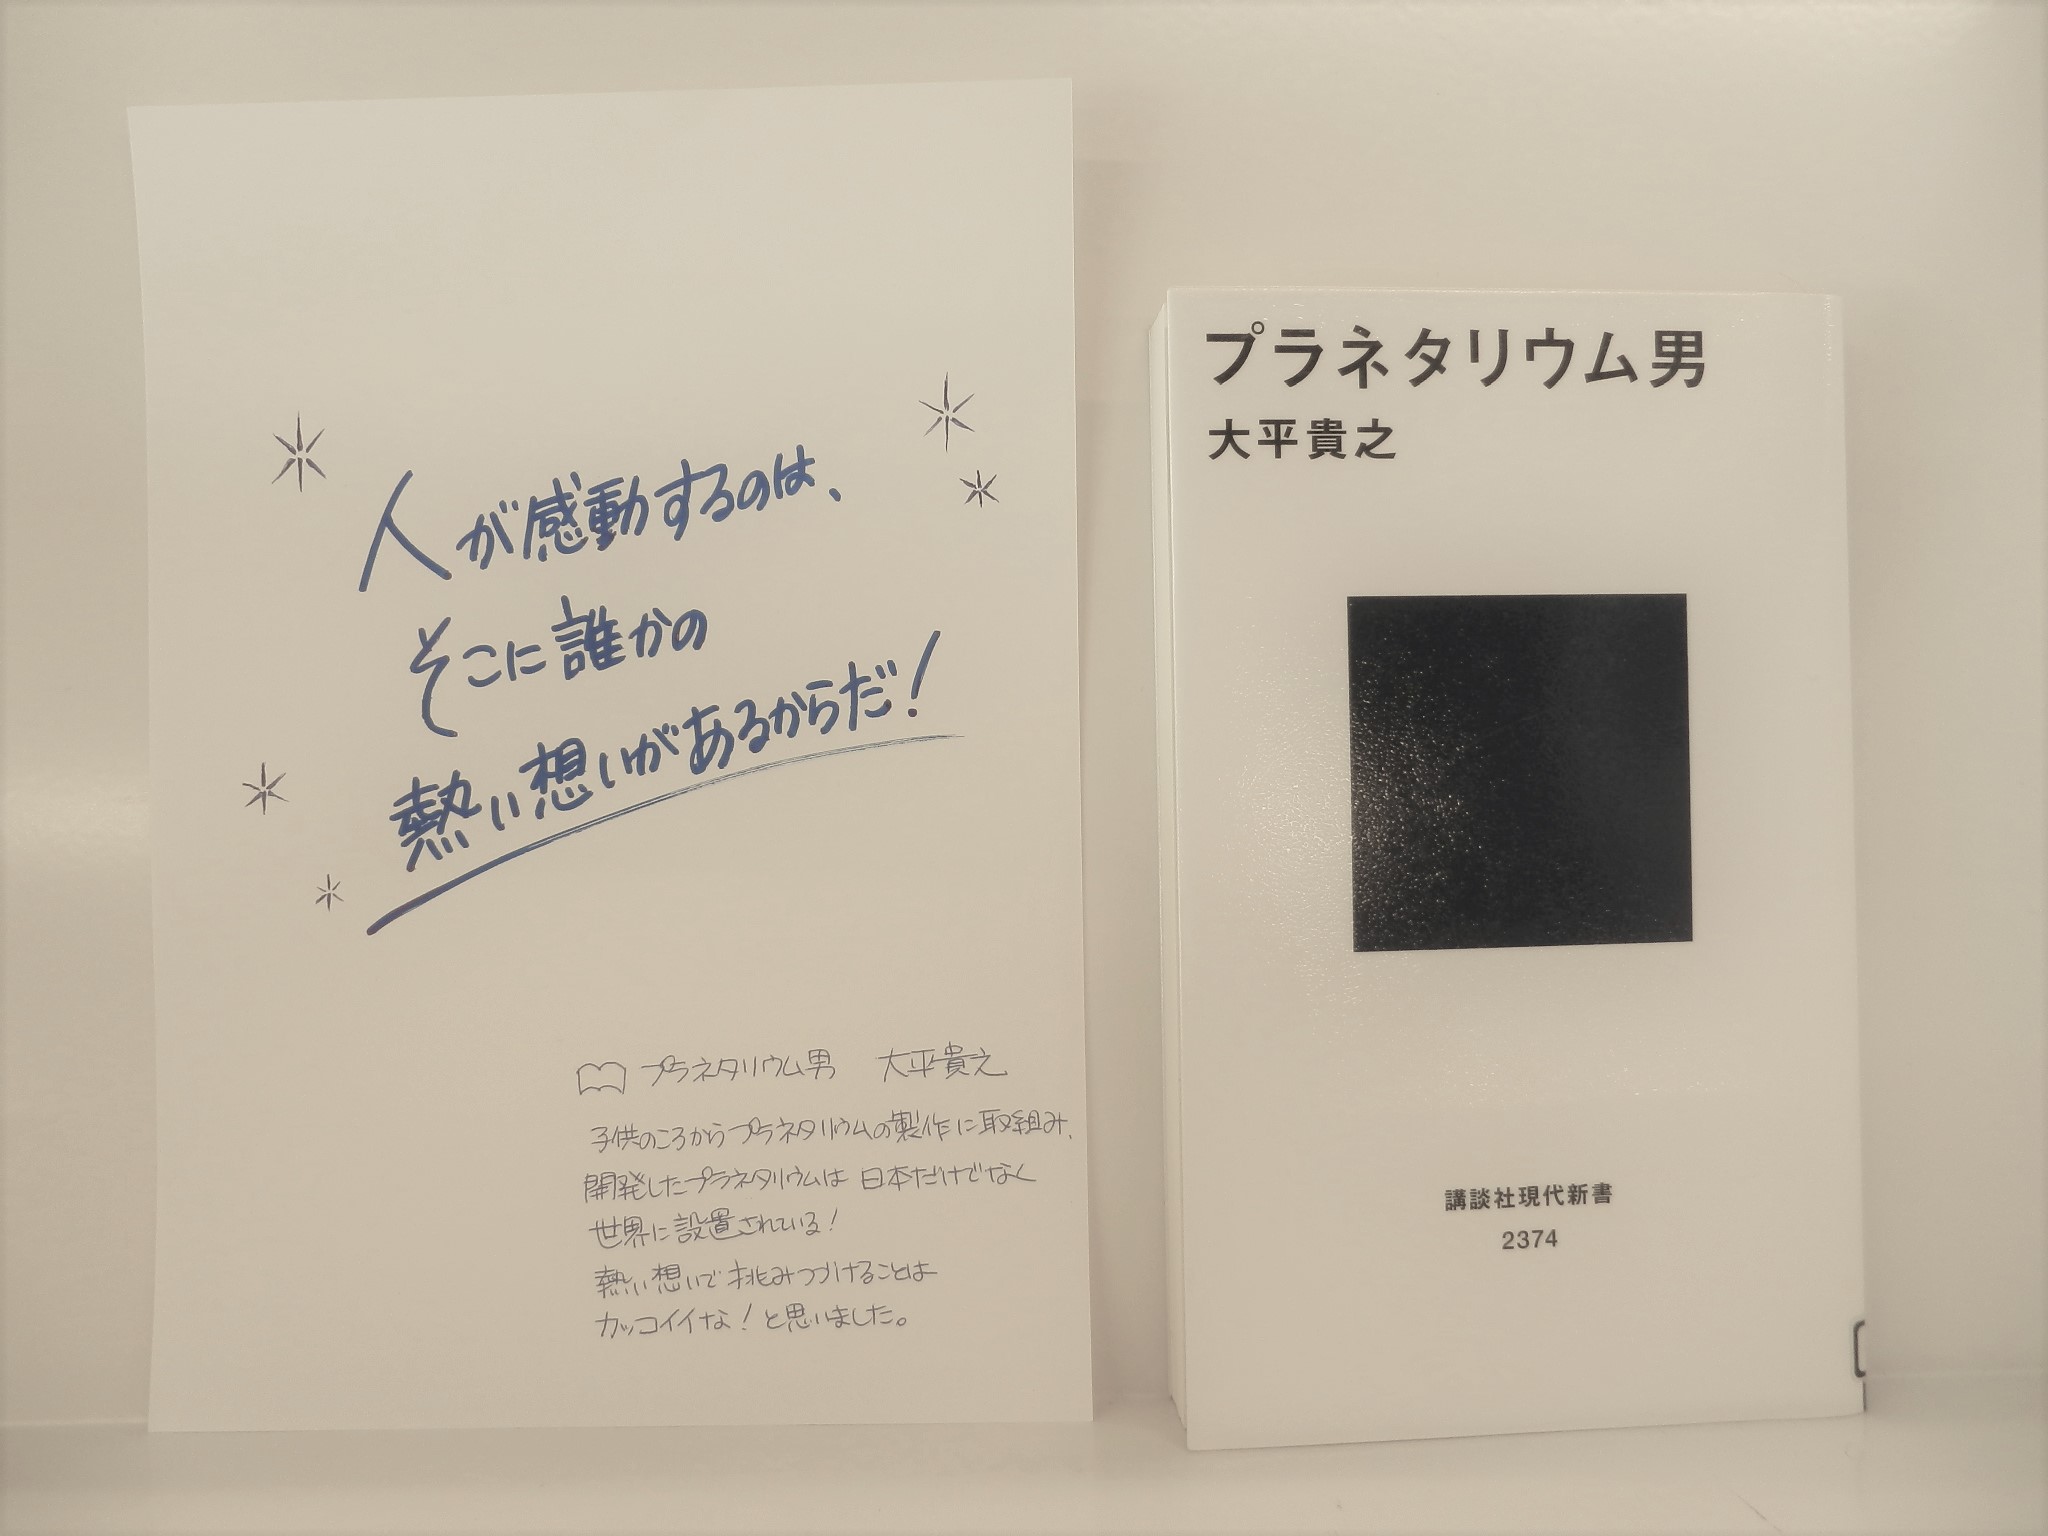 人が感動するのは、
そこに誰かの
熱い想いがあるからだ!
プラネタリウム男 大平貴之
子供のころからプラネタリウムの製作に取組み、
開発したプラネタリウムは日本だけでなく
世界に設置されている!
熱い想いで挑みつづけることは
カッコイイな!と思いました。
プラネタリウム男
大平貴之
講談社現代新書
2374